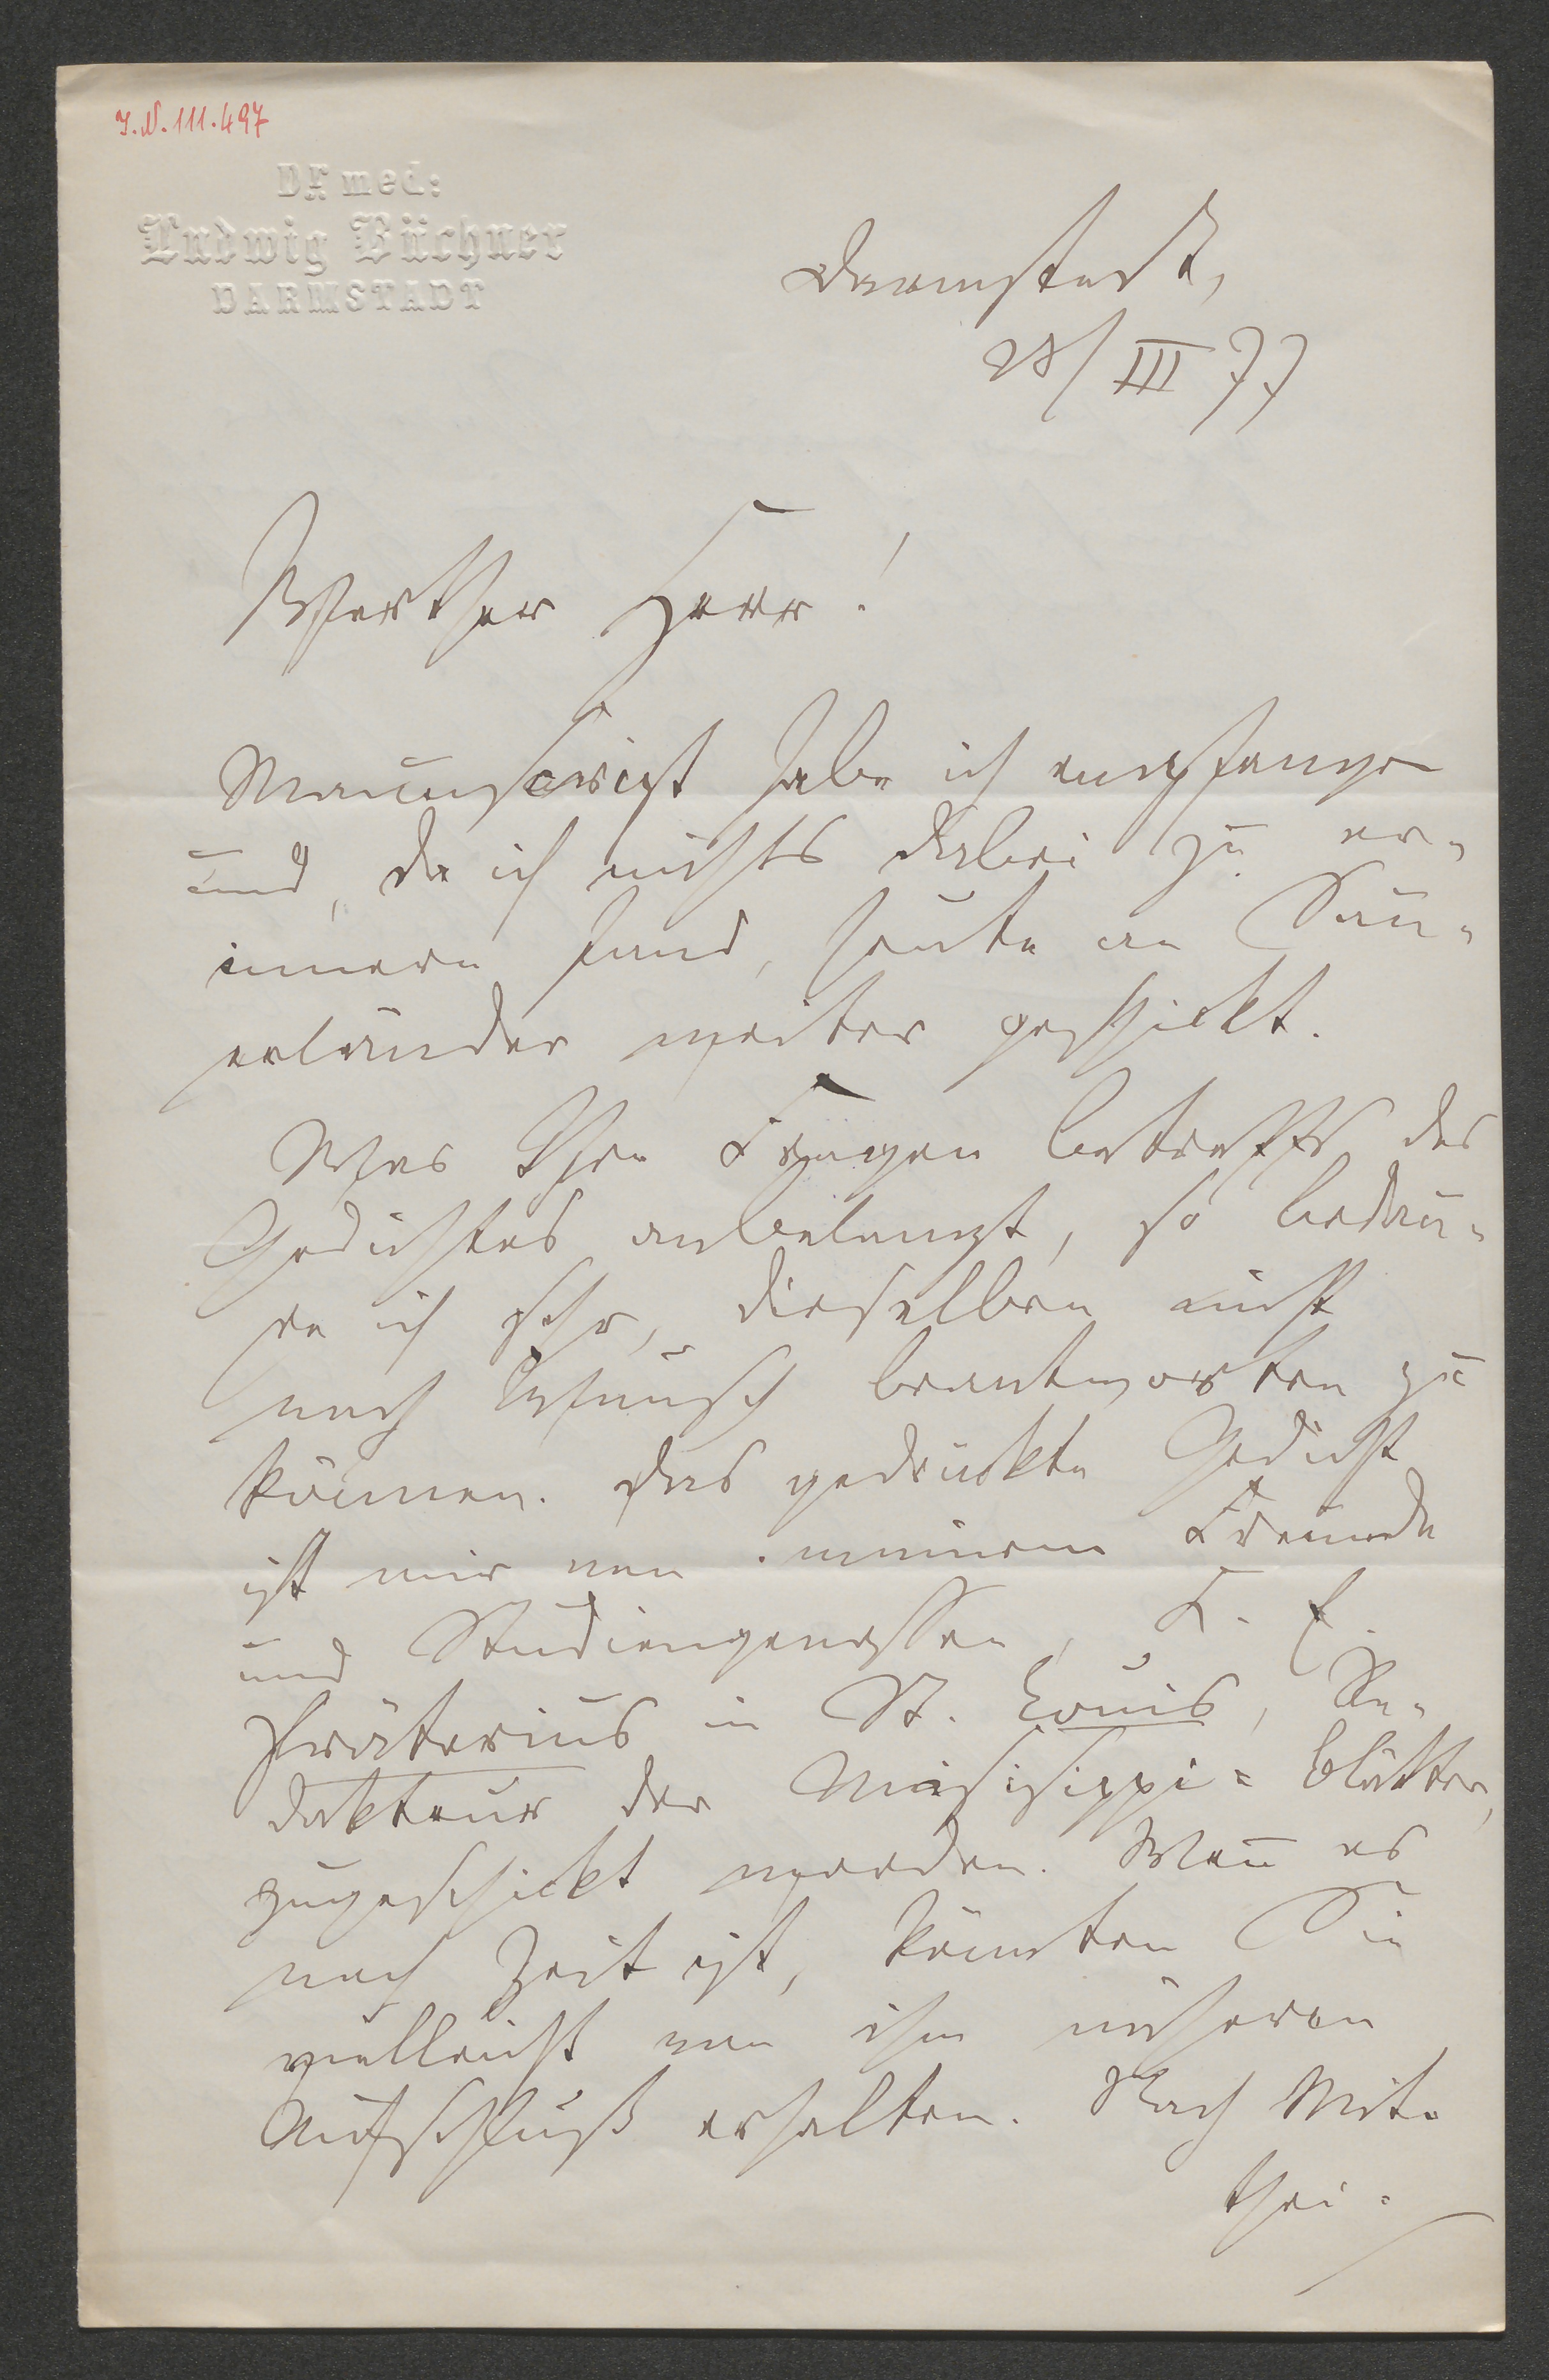 I.N. 111.497
Dr. med:
Ludwig Büchner
DARMSTADT
Darmstadt,
28/III 77
Werther Herr!
Manuscript habe ich empfangen
und, da ich nichts dabei zu er-
innern fand, heute an Sau-
erländer weiter geschickt.
Was Ihre Fragen betreffs des
Gedichtes anbelangt, so bedau-
re ich sehr, dieselben nicht
nach Wunsch beantworten zu
können. Das gedruckte Gedicht
ist mir von meinem Freunde
und Studiengenossen,
Präterius in St. Louis, Re-
dakteur der Missisippi-Blätter,
zugeschickt worden. Wenn es
noch Zeit ist, könnten Sie
vielleicht von ihm näheren
Aufschluß erhalten. Nach Mit-
thei-